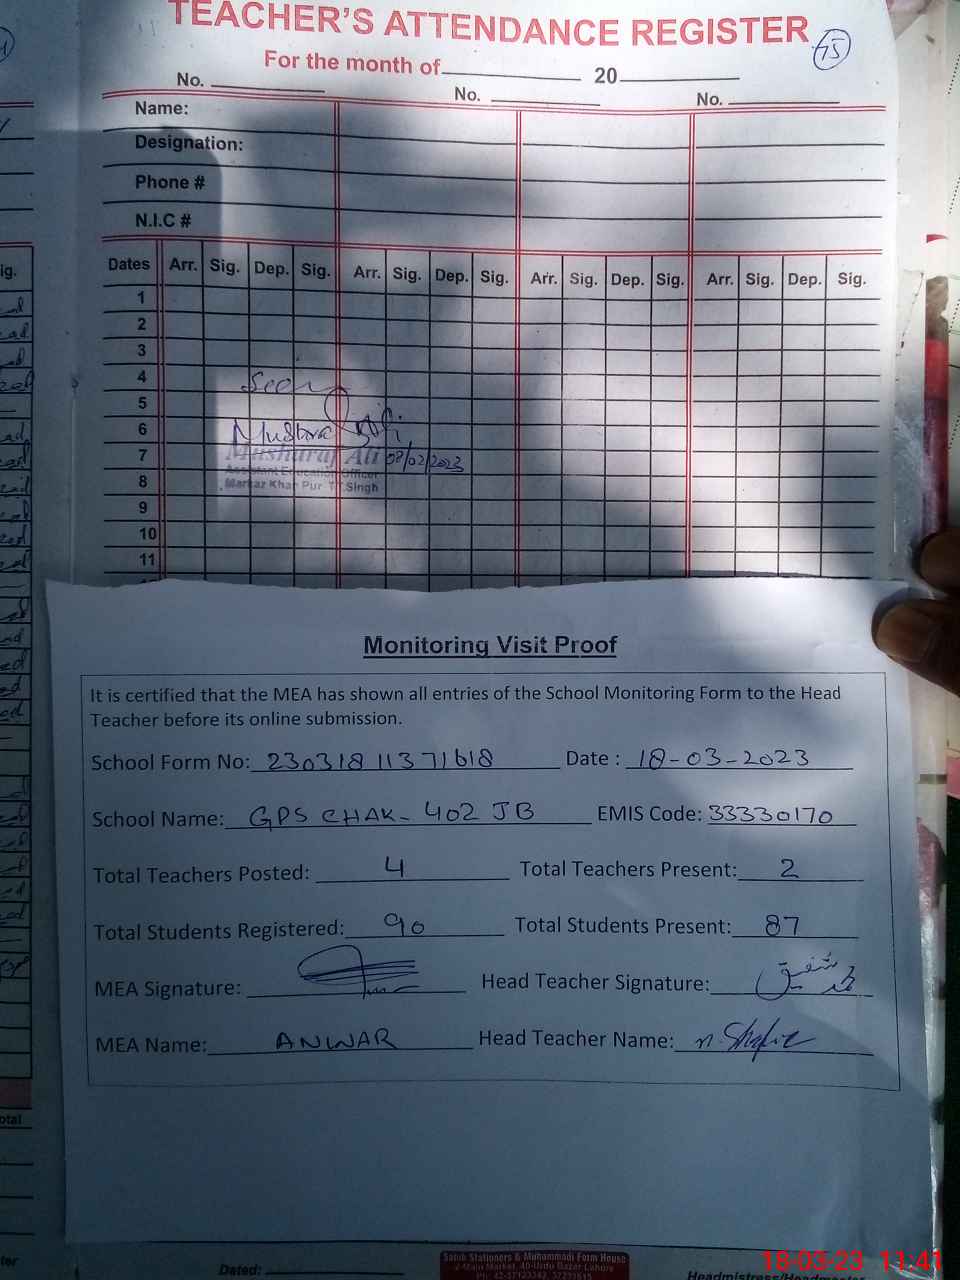 TEACHER'S ATTENDANCE REGISTER
75
For the month of 20
No. No. No.
Name:
Designation:
Phone #
N.I.C #
Dates Arr. Sig. Dep. Sig. Arr. Sig. Dep. Sig. Arr. Sig. Dep. Sig. Arr. Sig. Dep. Sig.
1
2
3
4
Seen
5
6
7
Musharaf Ali 08/02/2023
Assistant Education Officer
8
Markaz Khan Pur T.T.Singh
9
10
11
Monitoring Visit Proof
It is certified that the MEA has shown all entries of the School Monitoring Form to the Head
Teacher before its online submission.
School Form No: 23031811371618 Date : 18-03-2023
School Name: GPS CHAK-402 JB EMIS Code: 33330170
Total Teachers Posted: 4 Total Teachers Present: 2
Total Students Registered: 90 Total Students Present: 87
MEA Signature: Head Teacher Signature:
MEA Name: ANWAR Head Teacher Name: M. Shafiq
Dated:
Headmistress/Headmaster
18-03-23 11:41